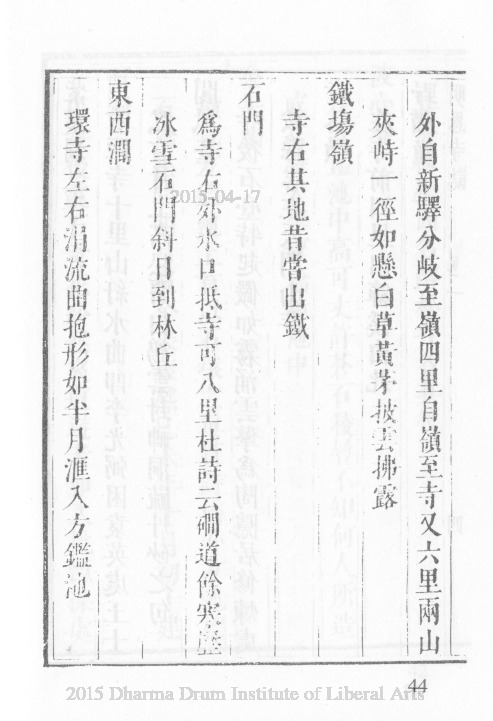 外自新驛分岐至嶺四里自嶺至寺又六里兩山
夾峙一徑如懸白草黃茅披雲拂露
鐵塲嶺
寺右其地昔嘗出鐵
石門
為寺右外水口抵寺可八里杜詩云磵道餘寒歷
冰雪石門斜日到林丘
東西澗
環寺左右涓流曲抱形如半月滙入方鑑池
2015-04-17
44
2015 Dharma Drum Institute of Liberal Arts